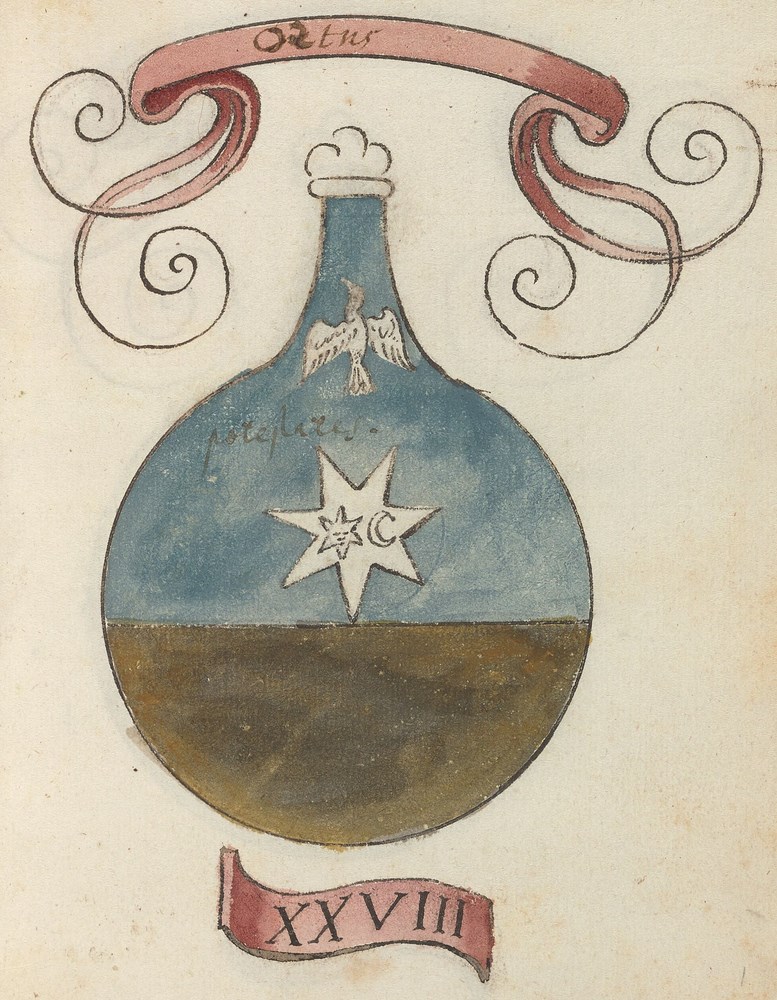 Ortus
potestates.
XXVIII